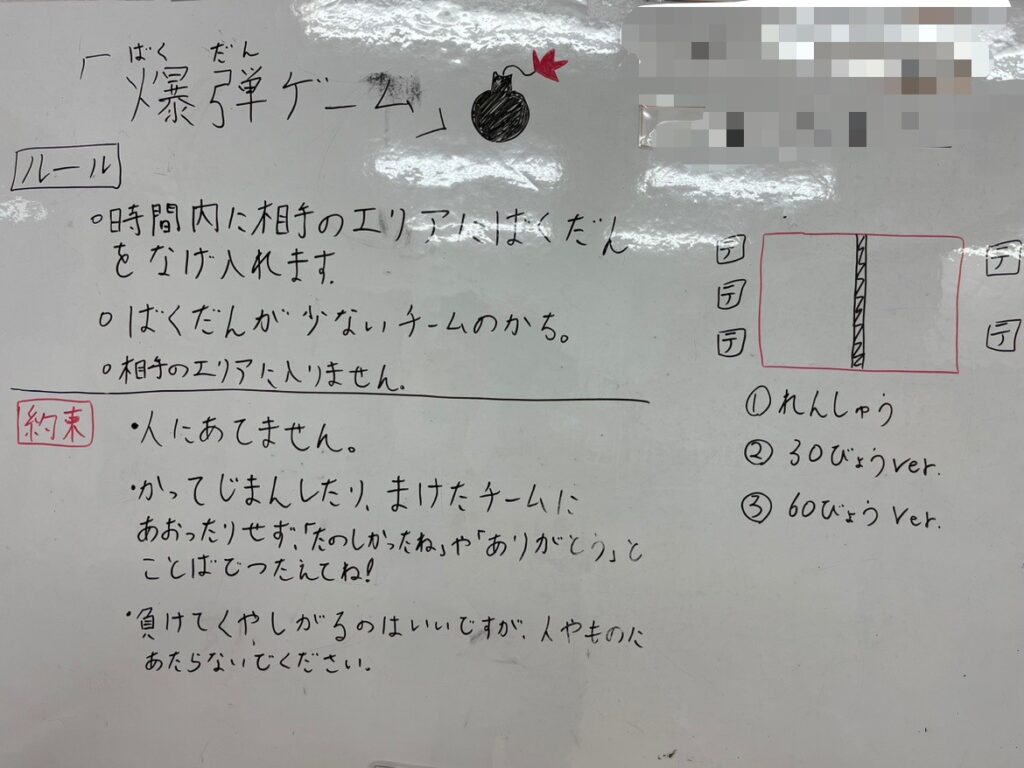 「爆弾ゲーム」
ばくだん
ルール
○時間内に相手のエリアにばくだん
をなげ入れます。
○ばくだんが少ないチームのかち。
○相手のエリアに入りません。
約束
・人にあてません。
・かってじまんしたり、まけたチームに
あおったりせず、「たのしかったね」や「ありがとう」と
ことばでつたえてね!
・負けてくやしがるのはいいですが、人やものに
あたらないでください。
テ
テ
テ
テ
テ
①れんしゅう
②30びょうver.
③60びょうver.